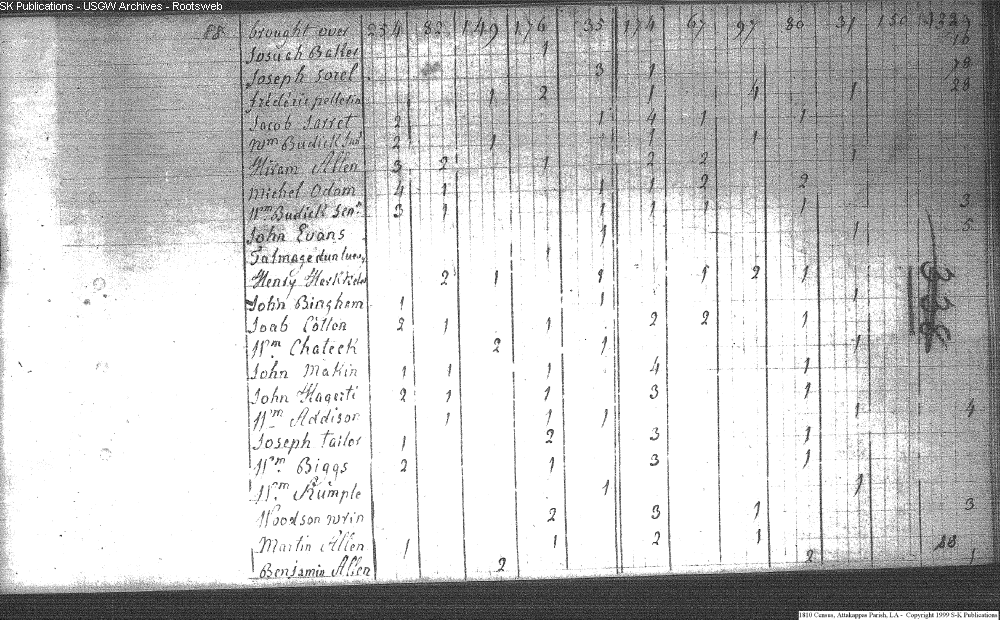 SK Publications - USGW Archives - Rootsweb
88 brought over 254 82 149 176 35 174 67 97 80 31 150
Josuah Baker 1 16
Joseph Sorel 3 1 78
frédéric pelletin 1 2 1 4 1 28
Jacob Jarret 2 1 4 1 1
Wm Budick Junr 2 1 1 1
Hiram Allen 3 2 1 2 2 1
Michel Odam 4 1 1 1 2 2
Wm Budick Senr 3 1 1 1 1 1 3
John Evans 1 1 5
Talmage 1
Henry 2 1 1 1 2 1
John Binghem 1 1 1
Joab Cotten 2 1 1 2 2 1
Wm Chateek 2 1 1
John Makin 1 1 1 4 1
John Hagerti 2 1 1 3 1
Wm Addison 1 1 1 1 4
Joseph Tailor 1 2 3 1
Wm Biggs 2 1 3 1
Wm Rumple 1 1
Woodson Wrin 2 3 1 3
Martin Allen 1 1 2 1
Benjamin Allen 2 2 1
1810 Census, Attakappas Parish, LA - Copyright 1999 S-K Publications